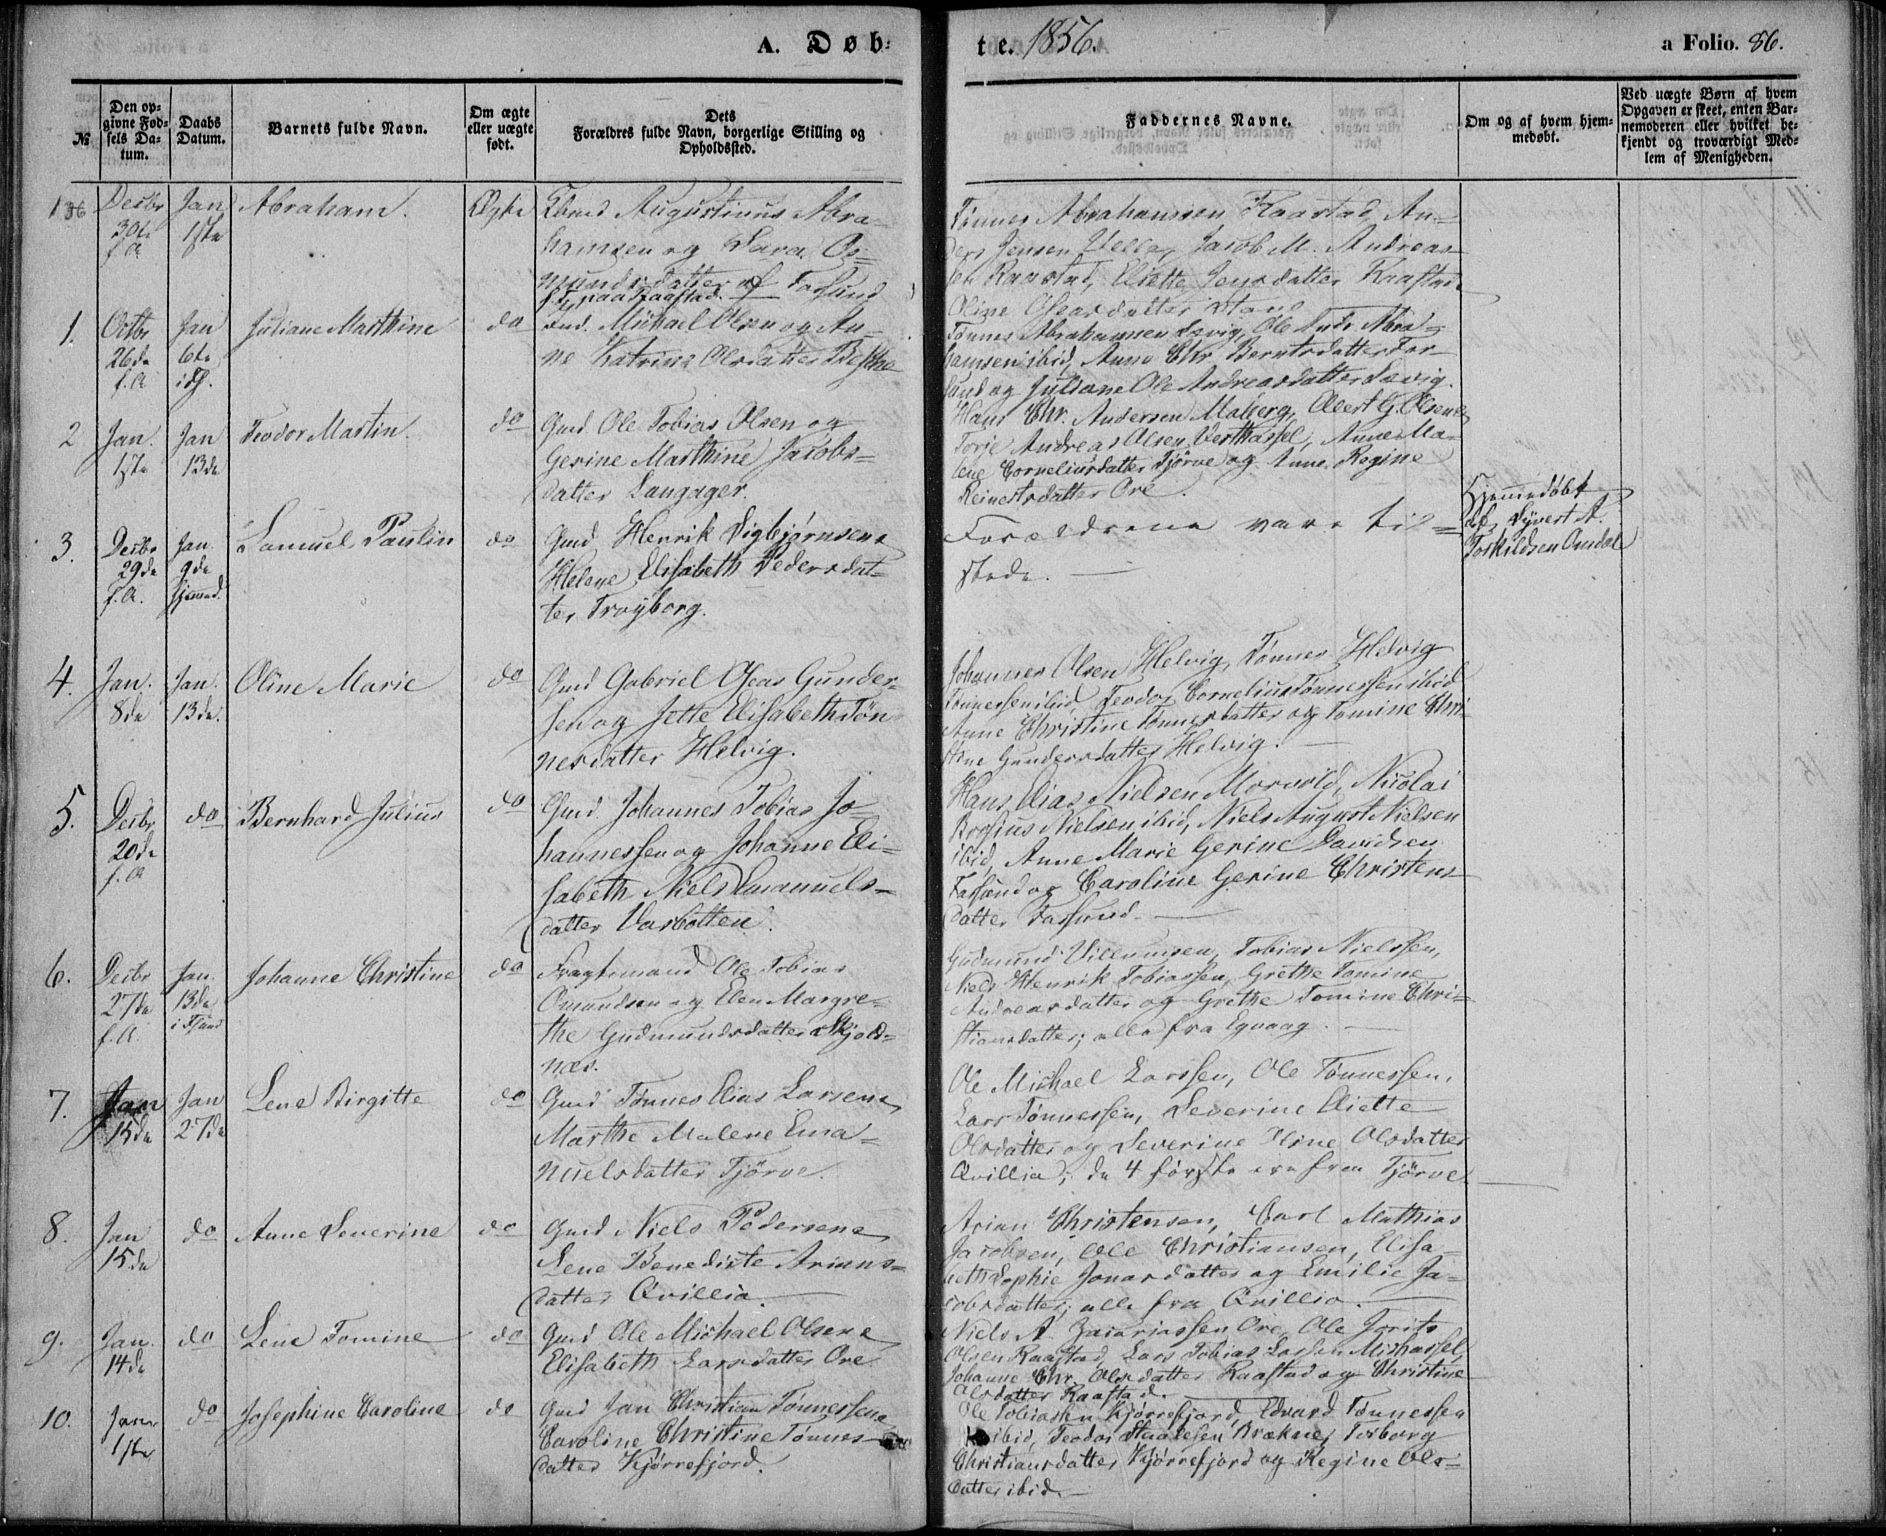 A. Døb-
te. 1856.
a Folio. 86.
№
Den op-
givne Fød-
sels Da-
tum.
Daabs
Datum.
Barnets fulde Navn.
Om ægte
eller uægte
født.
Dets
Forældres fulde Navn, borgerlige Stilling og
Opholdssted.
Faddernes Navne.
Om og af hvem hjem-
medøbt.
Ved uægte Børn af hvem
Opgaven er skeet, enten Bar-
nemoderen eller hvilket be-
kjendt og troværdigt Med-
lem af Menigheden.
136
Desbr
30te
f. A
Jan
1ste
Abraham.
Ægte
Augustinus Abra-
hamsen og Sara Os-
mundsdatter af Farsund
Tønnes Abrahamsen Raastad, An-
ders Jensen Velle, Jacob M. Andreas-
sen Raastad, Eliette Jensdatter Raastad
Oline Oseasdatter
1.
Octbr
26de
f. A
Jan
6te
Juliane Marthine
do
Ind. Michael Olsen og An-
ne Katrine Olsdatter
Tønnes Abrahamsen Løvig, Ole Andr. Abra-
hamsen ibid, Anne Chr. Berntsdatter Far-
sund og Juliane Ole Andreasdatter Løvig.
2
Jan.
1ste
Jan
13de
Teodor Martin.
do
Gmd. Ole Tobias Olsen og
Gerine Marthine Jacobs-
datter Langager.
Hans Chr. Andersen Maberg, Abert G. Olsen
Torje Andreas Olsen Vesthassel, Anne Ma-
lene Corneliusdatter Tjørve og Anne Regine
Reinertsdatter Ore.
3.
Desbr
29de
f. A.
Jan.
9de
hjemmed.
Samuel Paulin
do
Gmd Henrik Sigbjørnsen
Helene Elisabeth Pedersdat-
ter Frøyborg.
Forældrene vare til-
stede.
Hjemmedøbt
af Syvert A.
Torkildsen Omdal
4.
Jan.
8de
Jan.
13de.
Oline Marie
do
Gmd Gabriel Oseas Gunder-
sen og Jette Elisabeth Tøn-
nesdatter Helvig.
Johannes Olsen Helvig, Tønnes Helvig
Tønnessen ibid Teodor Cornelius Tønnessen ibid
Anne Christine Tønnesdatter og Tomine Chri-
stine Gundersdatter Helvig.
5.
Desbr
20de
f. A
do
Bernhard Julius
do
Gmd Johannes Tobias Jo-
hannessen og Johanne Eli-
sabeth Niels Emanuels-
datter Vasbotten.
Hans Elias Nielsen Morvold, Nicolai
Nielsen ibid, Niels August Nielsen
ibid, Anne Marie Gerine Davidsen
Farsund og Caroline Gerine Christens-
datter Farsund.
6.
Desbr
27de
f. A
Jan.
13de
Johanne Christine
do
Fragtemand Ole Tobias
Omundsen og Elen Margre-
the Gudmundsdatter Skjold-
næs.
Gudmund Villumsen, Tobias Nielssen,
Niels Henrik Tobiassen, Grethe Tomine
Andreasdatter og Grethe Tomine Chri-
stiansdatter; alle fra Egvaag.
7.
Jan
15de
Jan
27de
Lene Birgitte
do
Gmd Tønnes Elias Larsen
Marthe Malene Ema-
nuelsdatter Tjørve.
Ole Michael Larssen, Ole Tønnessen,
Lars Tønnessen, Severine Eliette
Olsdatter og Severine Oline Olsdatter
Qvillia; de 4 første ere fra Tjørve
8.
Jan
15de
do
Anne Severine
do
Gmd Niels Pedersen
Lene Benedicte Arians-
datter Qvillia.
Arian Christensen, Carl Mathias
Jacobsen, Ole Christiansen, Elisa-
beth Sophie Jonasdatter og Emilie Ja-
cobsdatter; alle fra Qvillia.
9.
Jan.
14de
do
Lene Tomine
do
Gmd Ole Michael Olsen
Elisabeth Larsdatter Ore
Niels A. Zacariassen Ore, Ole Jorits
Olsen Raastad, Lars Tobias Larsen Midhassel,
Johanne Chr. Olsdatter Raastad og Christine
Olsdatter Raastad.
10.
Jan
1ste
do
Josephine Caroline
do
Gmd Jan Christian Tønnessen
Caroline Christine Tønnes-
datter Kjørrefjord.
Ole Tobiassen Kjørrefjord, Edvard Tønnessen
ibid, Teodor Staalesen Brækne, Torborg
Christiansdatter Kjørrefjord og Regine Ols-
datter ibid.